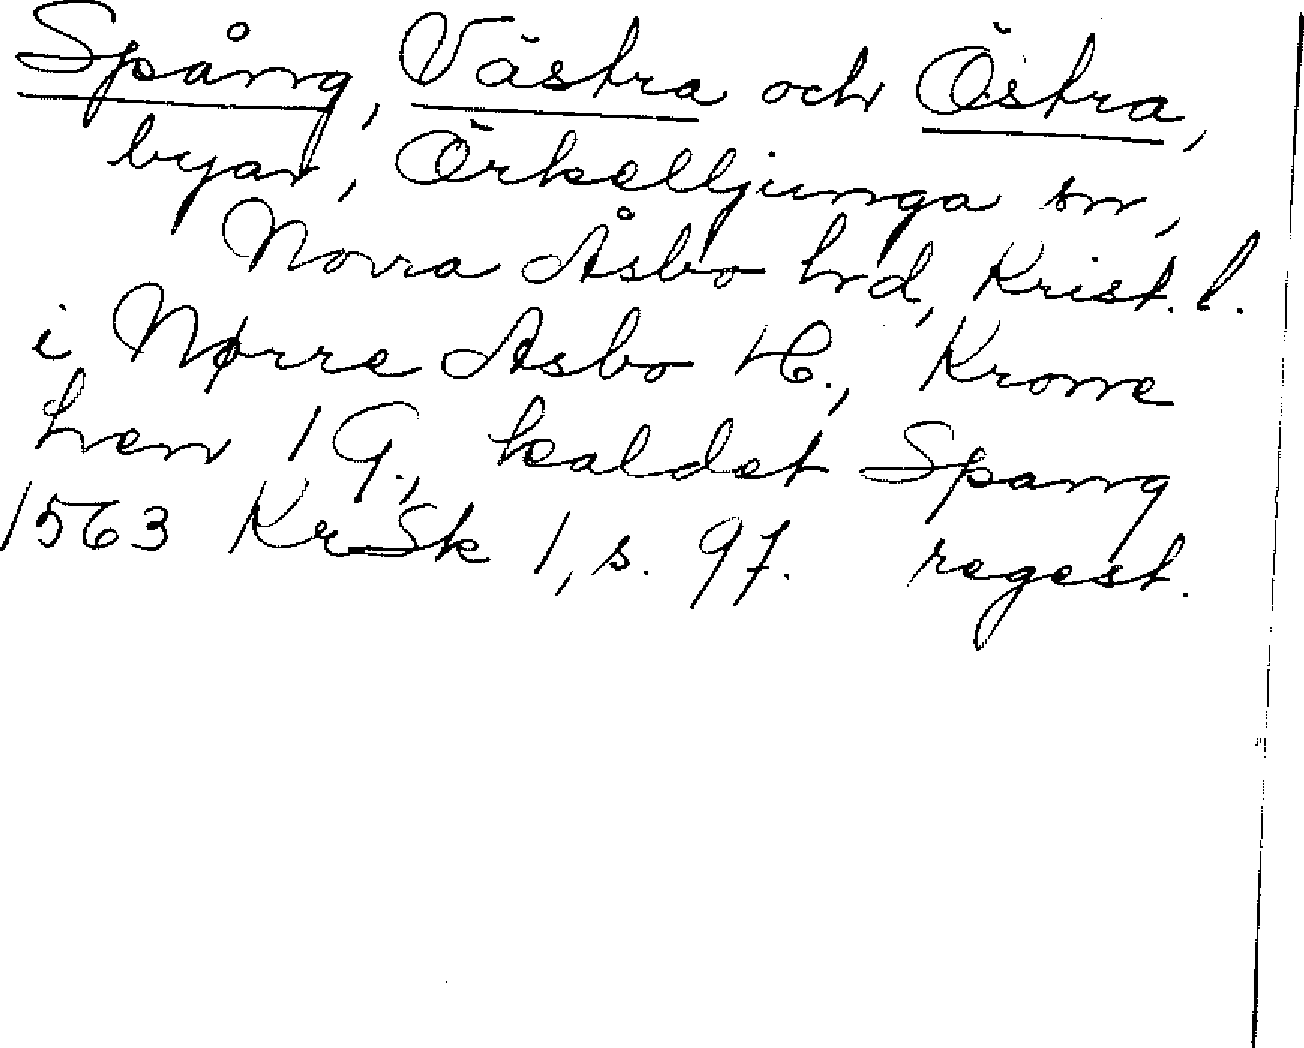 Spång, Västra och Östra,
byar, Örkelljunga sn,
Norra Åsbo hrd, Krist. l.
i Nørre Asbo H., Krone
len 1 G., kaldet Spang
1563 KrSk 1, s. 97. regest.